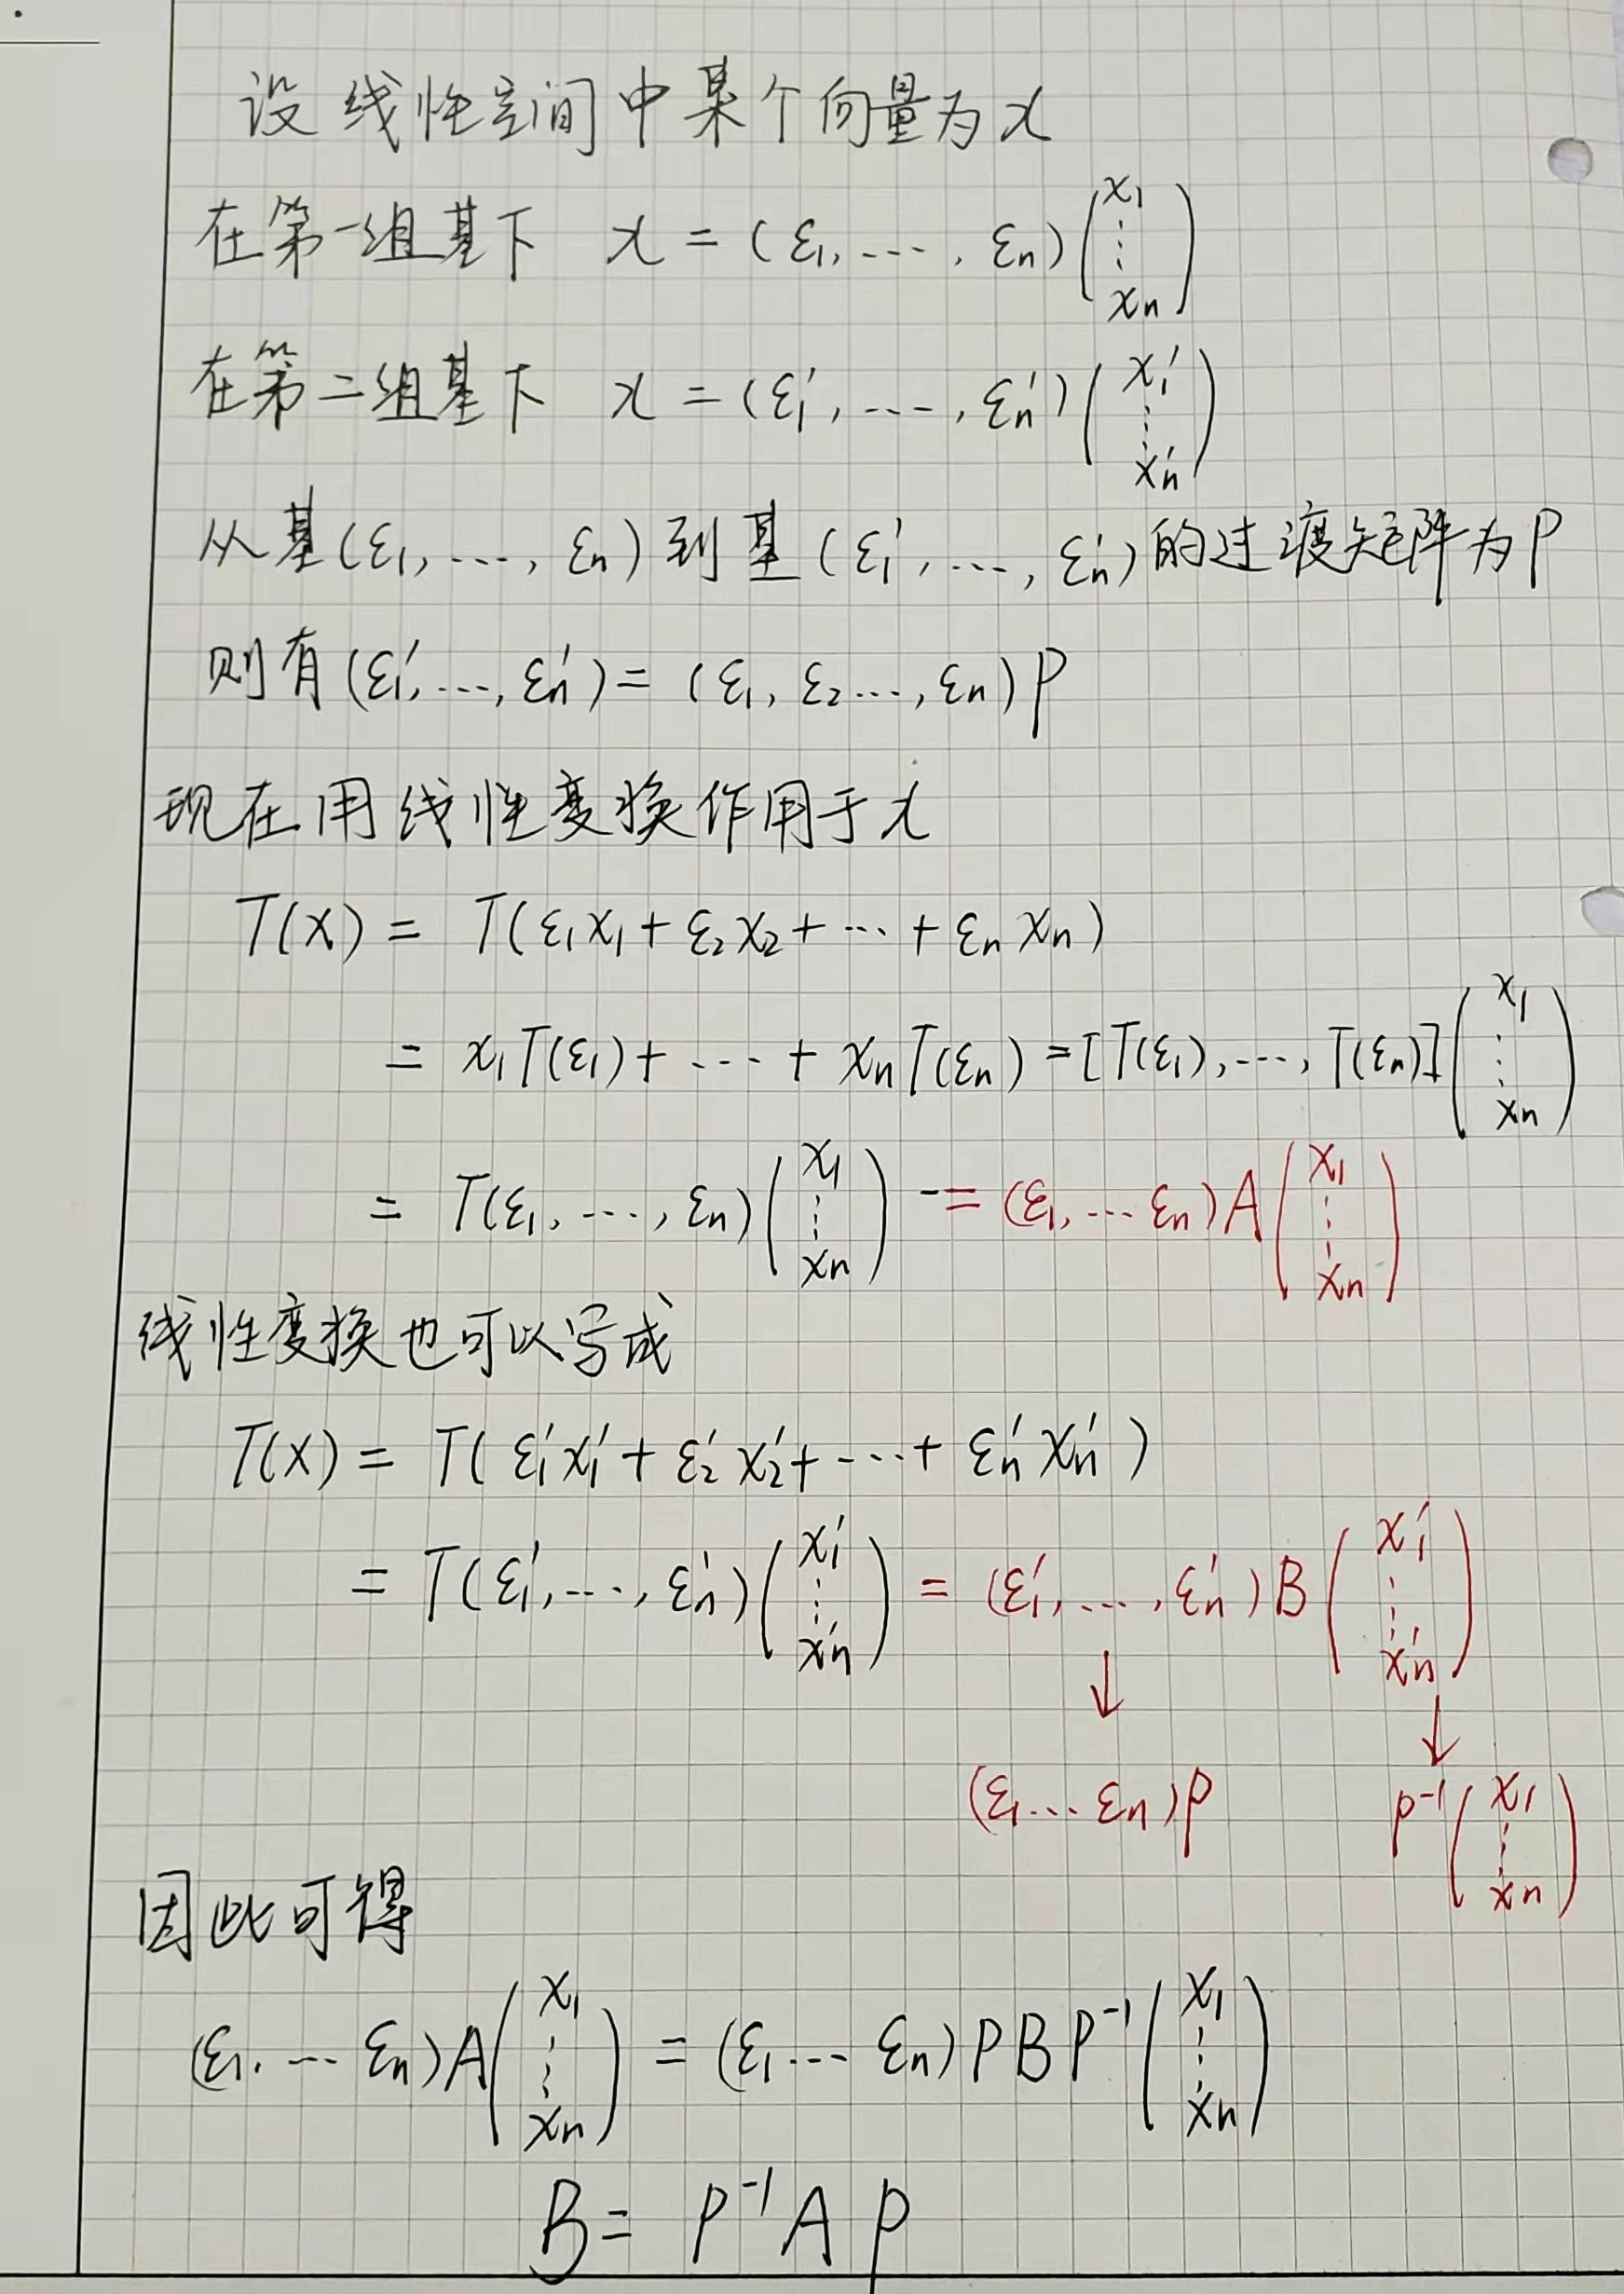 设线性空间中某个向量为x
在第一组基下 x = (ε₁, ---, εₙ)(x₁ ⋮ xₙ)
在第二组基下 x = (ε₁′, ---, εₙ′)(x₁′ ⋮ xₙ′)
从基(ε₁, ..., εₙ)到基(ε₁′, ..., εₙ′)的过渡矩阵为P
则有(ε₁′, ..., εₙ′) = (ε₁, ε₂..., εₙ)P
现在用线性变换作用于x
T(x) = T(ε₁x₁ + ε₂x₂ + ⋯ + εₙxₙ)
= x₁T(ε₁) + ---- + xₙT(εₙ) = [T(ε₁), ---, T(εₙ)](x₁ ⋮ xₙ)
= T(ε₁, ---, εₙ)(x₁ ⋮ xₙ) = (ε₁, --- εₙ)A(x₁ ⋮ xₙ)
线性变换也可以写成
T(x) = T(ε₁′x₁′ + ε₂′x₂′ + ---- + εₙ′xₙ′)
= T(ε₁′, ---, εₙ′)(x₁′ ⋮ xₙ′) = (ε₁′, ---, εₙ′)B(x₁′ ⋮ xₙ′)
↓ ↓
(ε₁ --- εₙ)P P⁻¹(x₁ ⋮ xₙ)
因此可得
(ε₁. --- εₙ)A(x₁ ⋮ xₙ) = (ε₁ --- εₙ)PBP⁻¹(x₁ ⋮ xₙ)
B = P⁻¹AP